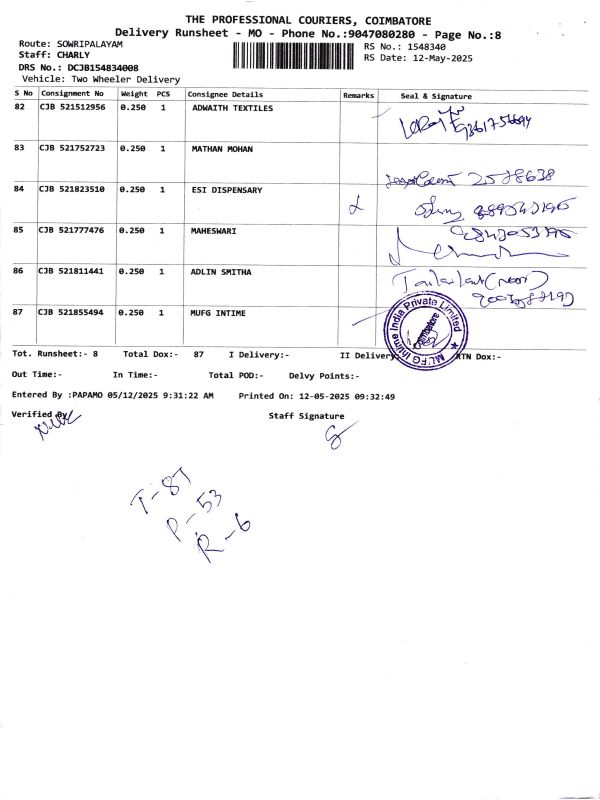 THE PROFESSIONAL COURIERS, COIMBATORE
Delivery Runsheet - MO - Phone No.:9047080280 - Page No.:8
Route: SOWRIPALAYAM
RS No.: 1548340
Staff: CHARLY
RS Date: 12-May-2025
DRS No.: DCJB154834008
Vehicle: Two Wheeler Delivery
S No Consignment No Weight PCS Consignee Details Remarks Seal & Signature
82 CJB 521512956 0.250 1 ADWAITH TEXTILES
83 CJB 521752723 0.250 1 MATHAN MOHAN
2578638
84 CJB 521823510 0.250 1 ESI DISPENSARY
85 CJB 521777476 0.250 1 MAHESWARI
86 CJB 521811441 0.250 1 ADLIN SMITHA
87 CJB 521855494 0.250 1 MUFG INTIME
MUFG Intime India Private Limited
Coimbatore
Tot. Runsheet:- 8 Total Dox:- 87 I Delivery:- II Delivery RTN Dox:-
Out Time:- In Time:- Total POD:- Delvy Points:-
Entered By :PAPAMO 05/12/2025 9:31:22 AM Printed On: 12-05-2025 09:32:49
Verified By Staff Signature
T-87
P-53
R-6